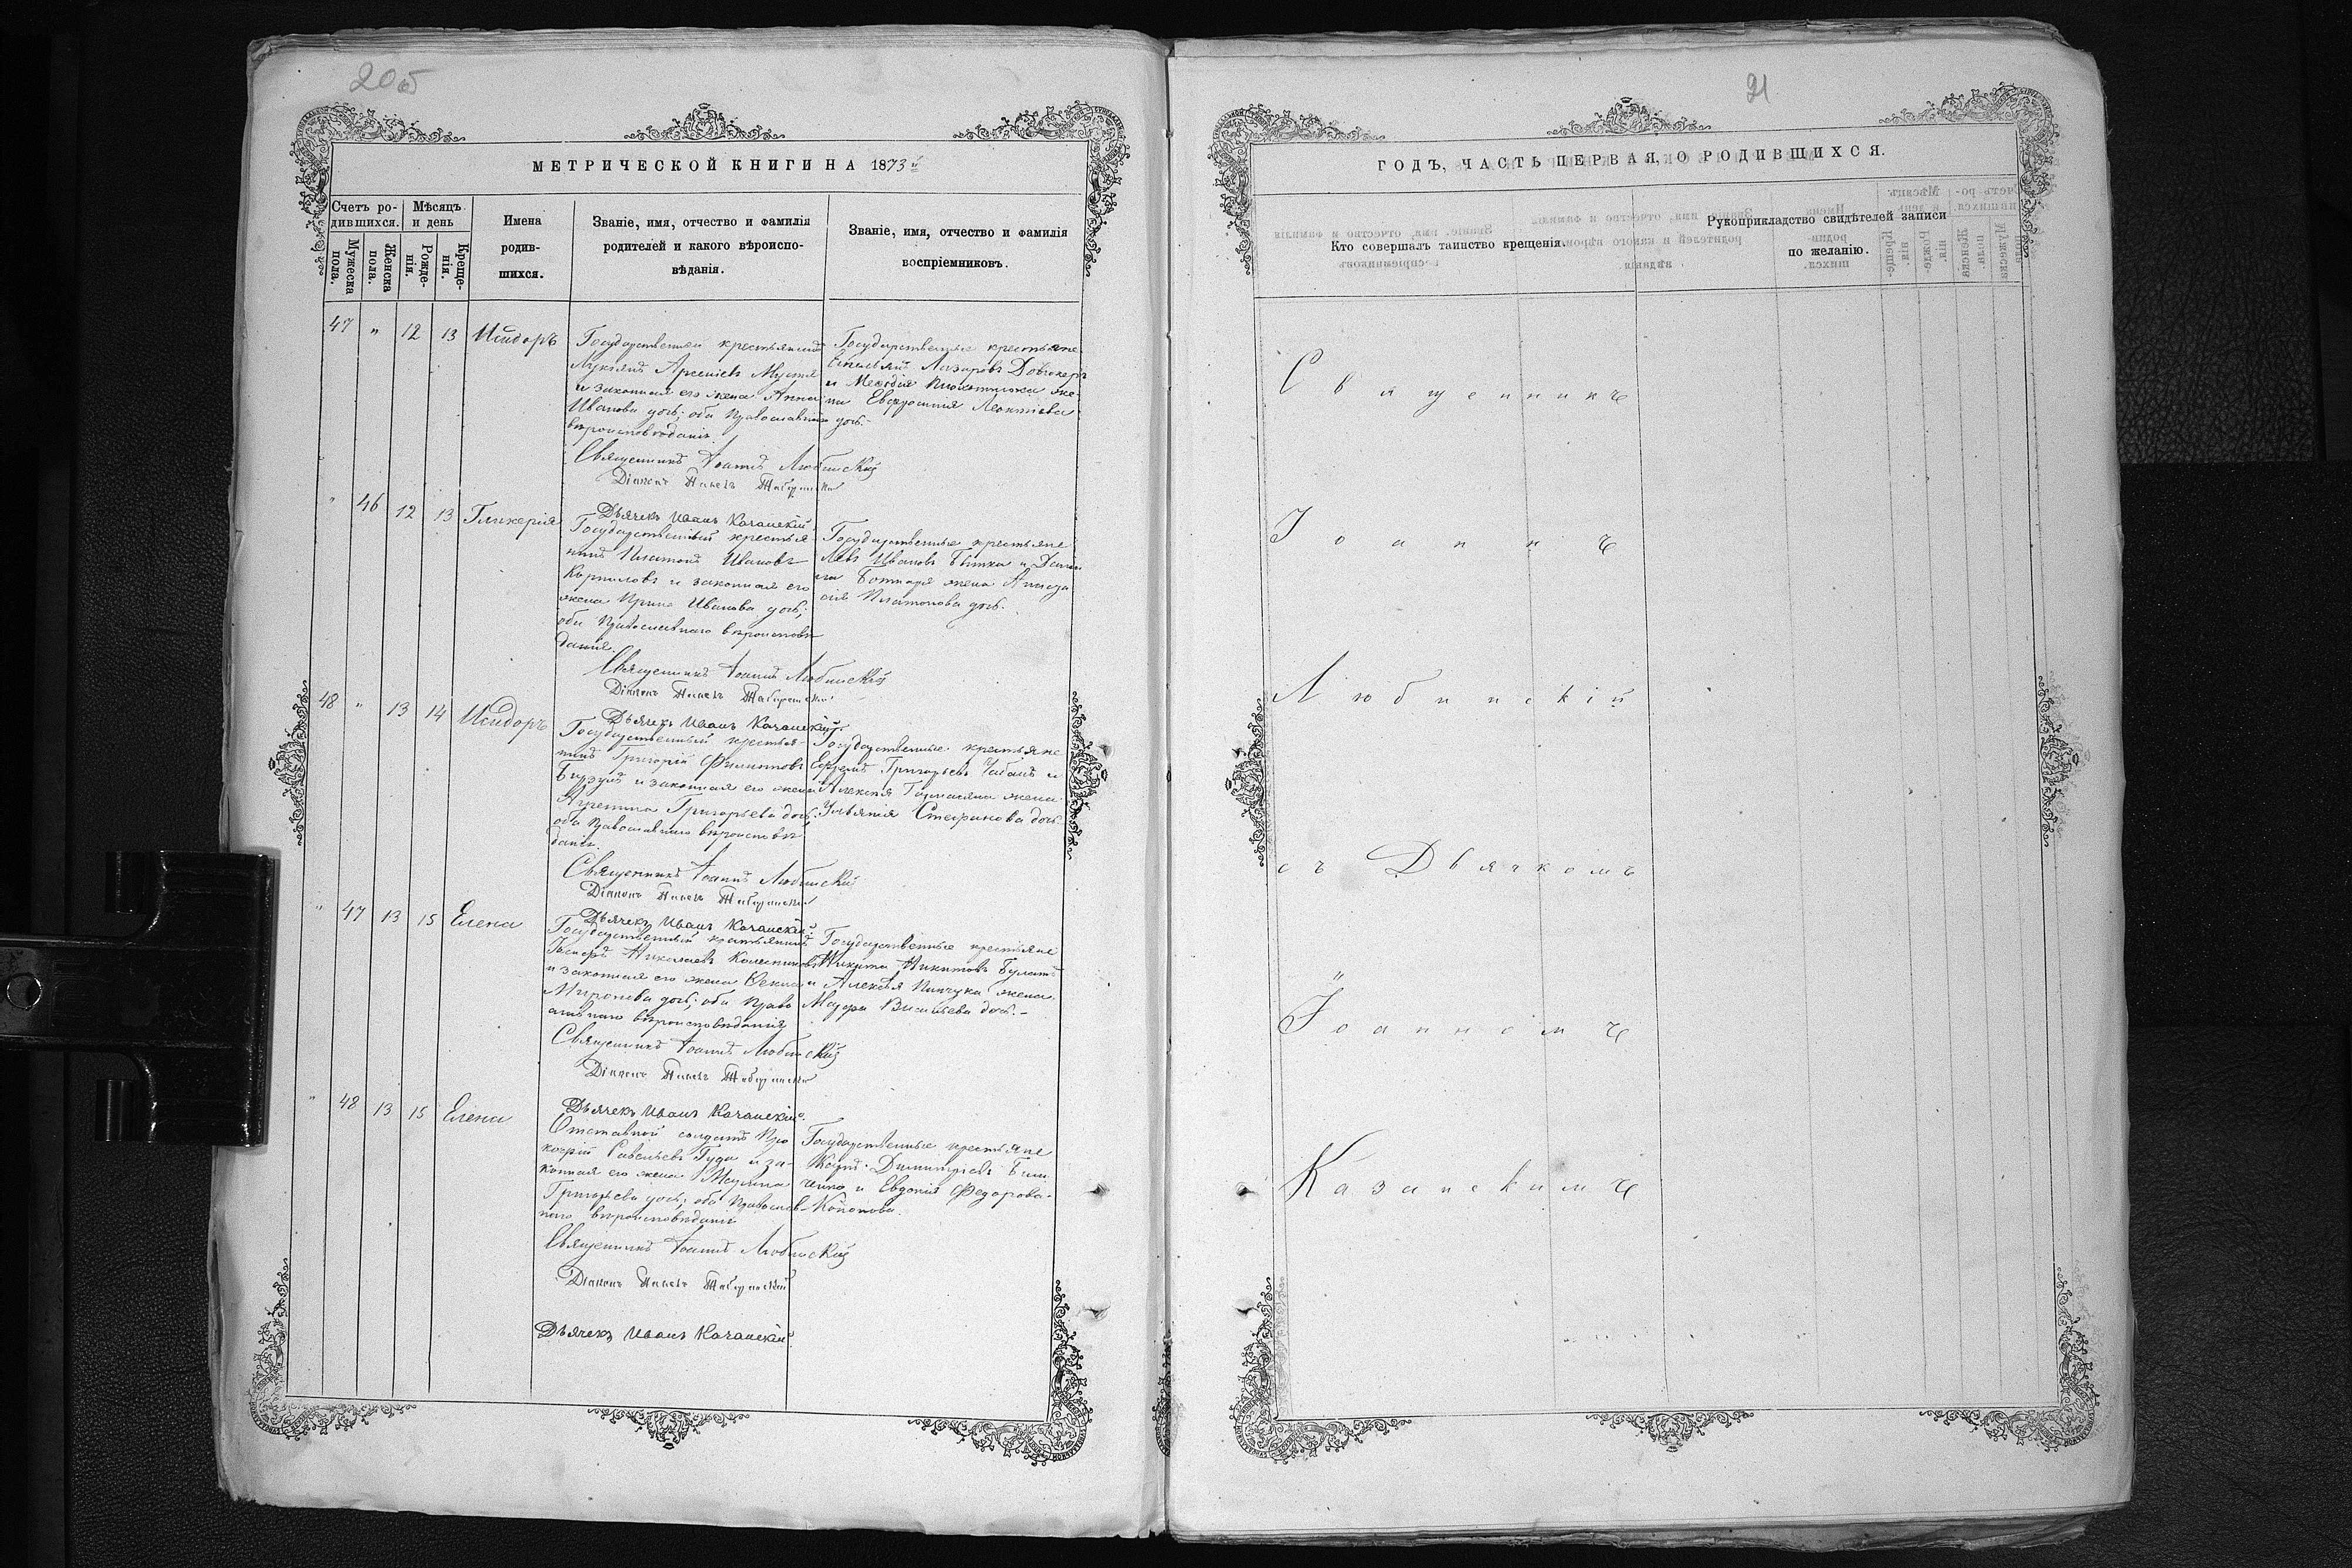 20об
МЕТРИЧЕСКОЙ КНИГИ НА 1873й
Счетъ ро-
дившихся.
Мѣсяцъ
и день
Мужеска
пола.
Женска
пола.
Рожде-
нія.
Креще-
нія.
Имена
родив-
шихся.
Званіе, имя, отчество и фамилія
родителей и какого вѣроиспо-
вѣданія.
Званіе, имя, отчество и фамилія
воспріемниковъ.
47 " 12 13 Исидоръ
Государственный крестьянинъ
Лукіянъ Арсеніевъ
и законная его жена Анна
Иванова дочь; оба Православнаго
вѣроисповѣданія.
Государственные крестьяне
Емельянъ Лазаревъ
и Меѳодія же-
на Евфросинія Леонтіева
дочь.
Священникъ Іоаннъ Любинскій
Діаконъ Павелъ
Дьячекъ Иванъ Казанскій
" 46 12 13 Гликерія
Государственный крестья-
нинъ Платонъ Ивановъ
Корниловъ и законная его
жена Ирина Иванова дочь;
оба Православнаго вѣроисповѣ
данія.
Государственные крестьяне
Левъ Ивановъ и
Ботнаря жена
Платонова дочь.
Священникъ Іоаннъ Любинскій
Діаконъ Павелъ
Дьячекъ Иванъ Казанскій
48 " 13 14 Исидоръ
Государственный крестья-
нинъ Григорій Филиповъ
и законная его жена
Агрепина Григорьева дочь;
оба Православнаго вѣроисповѣ
данія.
Государственные крестьяне
Ефремъ Григорьевъ Чабанъ и
Алексія жена
Ульянія Стефанова дочь
Священникъ Іоаннъ Любинскій
Діаконъ Павелъ
Дьячекъ Иванъ Казанскій
" 47 13 15 Елена
Государственный крестьянинъ
Николаевъ Колесниковъ
и законная его жена
Миронова дочь; оба Право
славнаго вѣроисповѣданія
Государственные крестьяне
Никита Никитовъ
и Алексѣя Пинчука жена
Васильева дочь.-
Священникъ Іоаннъ Любинскій
Діаконъ Павелъ
Дьячекъ Иванъ Казанскій
" 48 13 15 Елена
Отставной солдатъ Про
кофій Савельевъ Гуда и за-
конная его жена
Григорьева дочь; оба Православ-
наго вѣроисповѣданія
Государственные крестьяне
Димитріевъ
и Евдокія Федорова-
Кононова.
Священникъ Іоаннъ Любинскій
Діаконъ Павелъ
Дьячекъ Иванъ Казанскій
21
ГОДЪ, ЧАСТЬ ПЕРВАЯ, О РОДИВШИХСЯ.
Кто совершалъ таинство крещенія.
Рукоприкладство свидѣтелей записи
по желанію.
Священникъ
Іоаннъ
Любинскій
съ Дьячкомъ
Іоанномъ
Казанскимъ